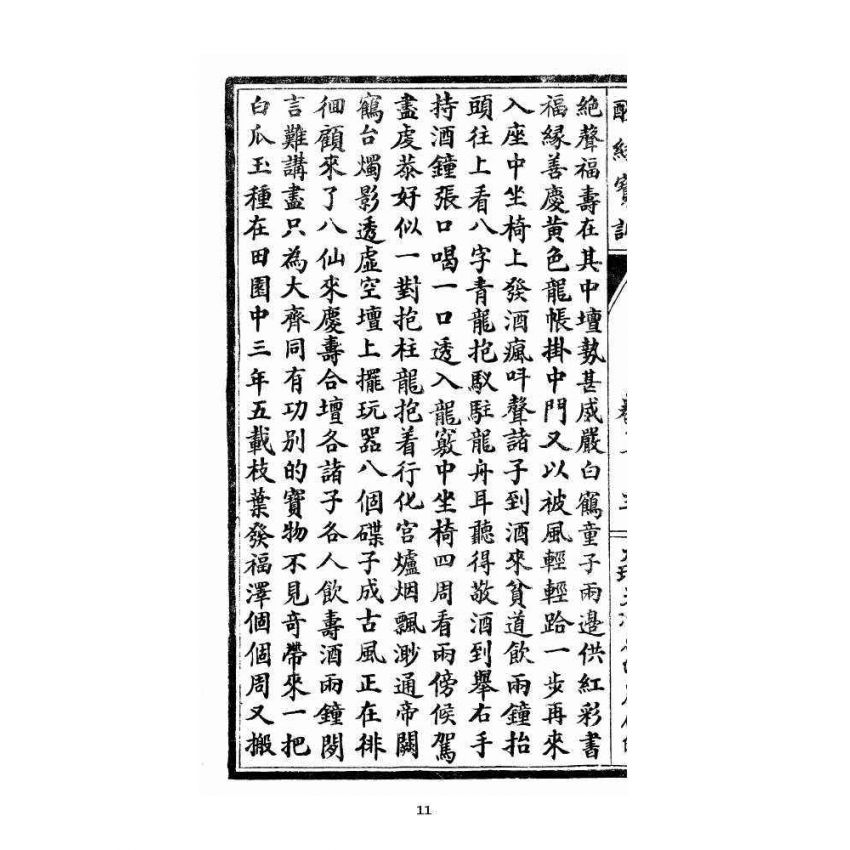 絶聲福壽在其中壇勢甚威嚴白鶴童子兩邊供紅彩書
福緣善慶黃色龍帳掛中門又以被風輕輕跲一步再來
入座中坐椅上發酒瘋吽聲諸子到酒來貧道飲兩鐘抬
頭往上看八字青龍抱馭駐龍舟耳聽得敬酒到舉右手
持酒鐘張口喝一口透入龍竅中坐椅四周看兩傍候駕
盡虔恭好似一對抱柱龍抱着行化宮爐烟飄渺通帝闕
鶴台燭影透虛空壇上擺玩器八個碟子成古風正在徘
徊顧來了八仙來慶壽合壇各諸子各人飲壽酒兩鐘閱
言難講盡只為大齊同有功別的寶物不見奇帶來一把
白瓜玉種在田園中三年五載枝葉發福澤個個周又搬
11